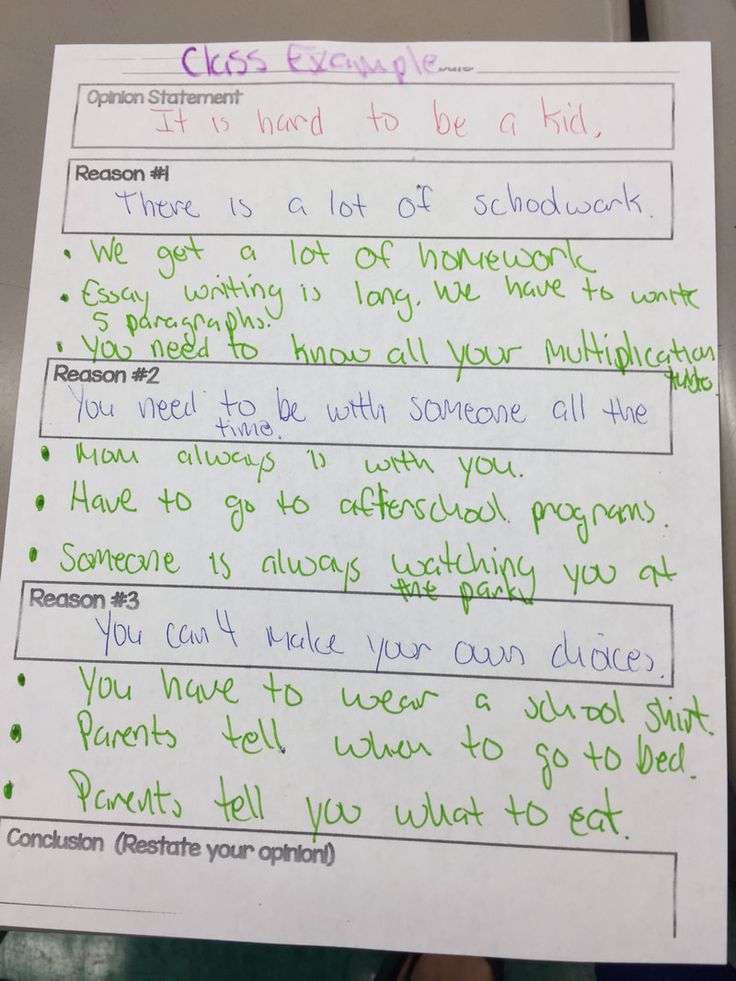 Class Example......
Opinion Statement
It is hard to be a kid.
Reason #1
There is a lot of schoolwork.
• We get a lot of homework
• Essay writing is long. We have to write
5 paragraphs.
• You need to know all your multiplication
Reason #2
You need to be with someone all the
time.
• Mom always is with you.
• Have to go to afterschool programs.
• Someone is always watching you at
the park
Reason #3
You can't make your own choices.
• You have to wear a school shirt.
• Parents tell when to go to bed.
• Parents tell you what to eat.
Conclusion (Restate your opinion!)